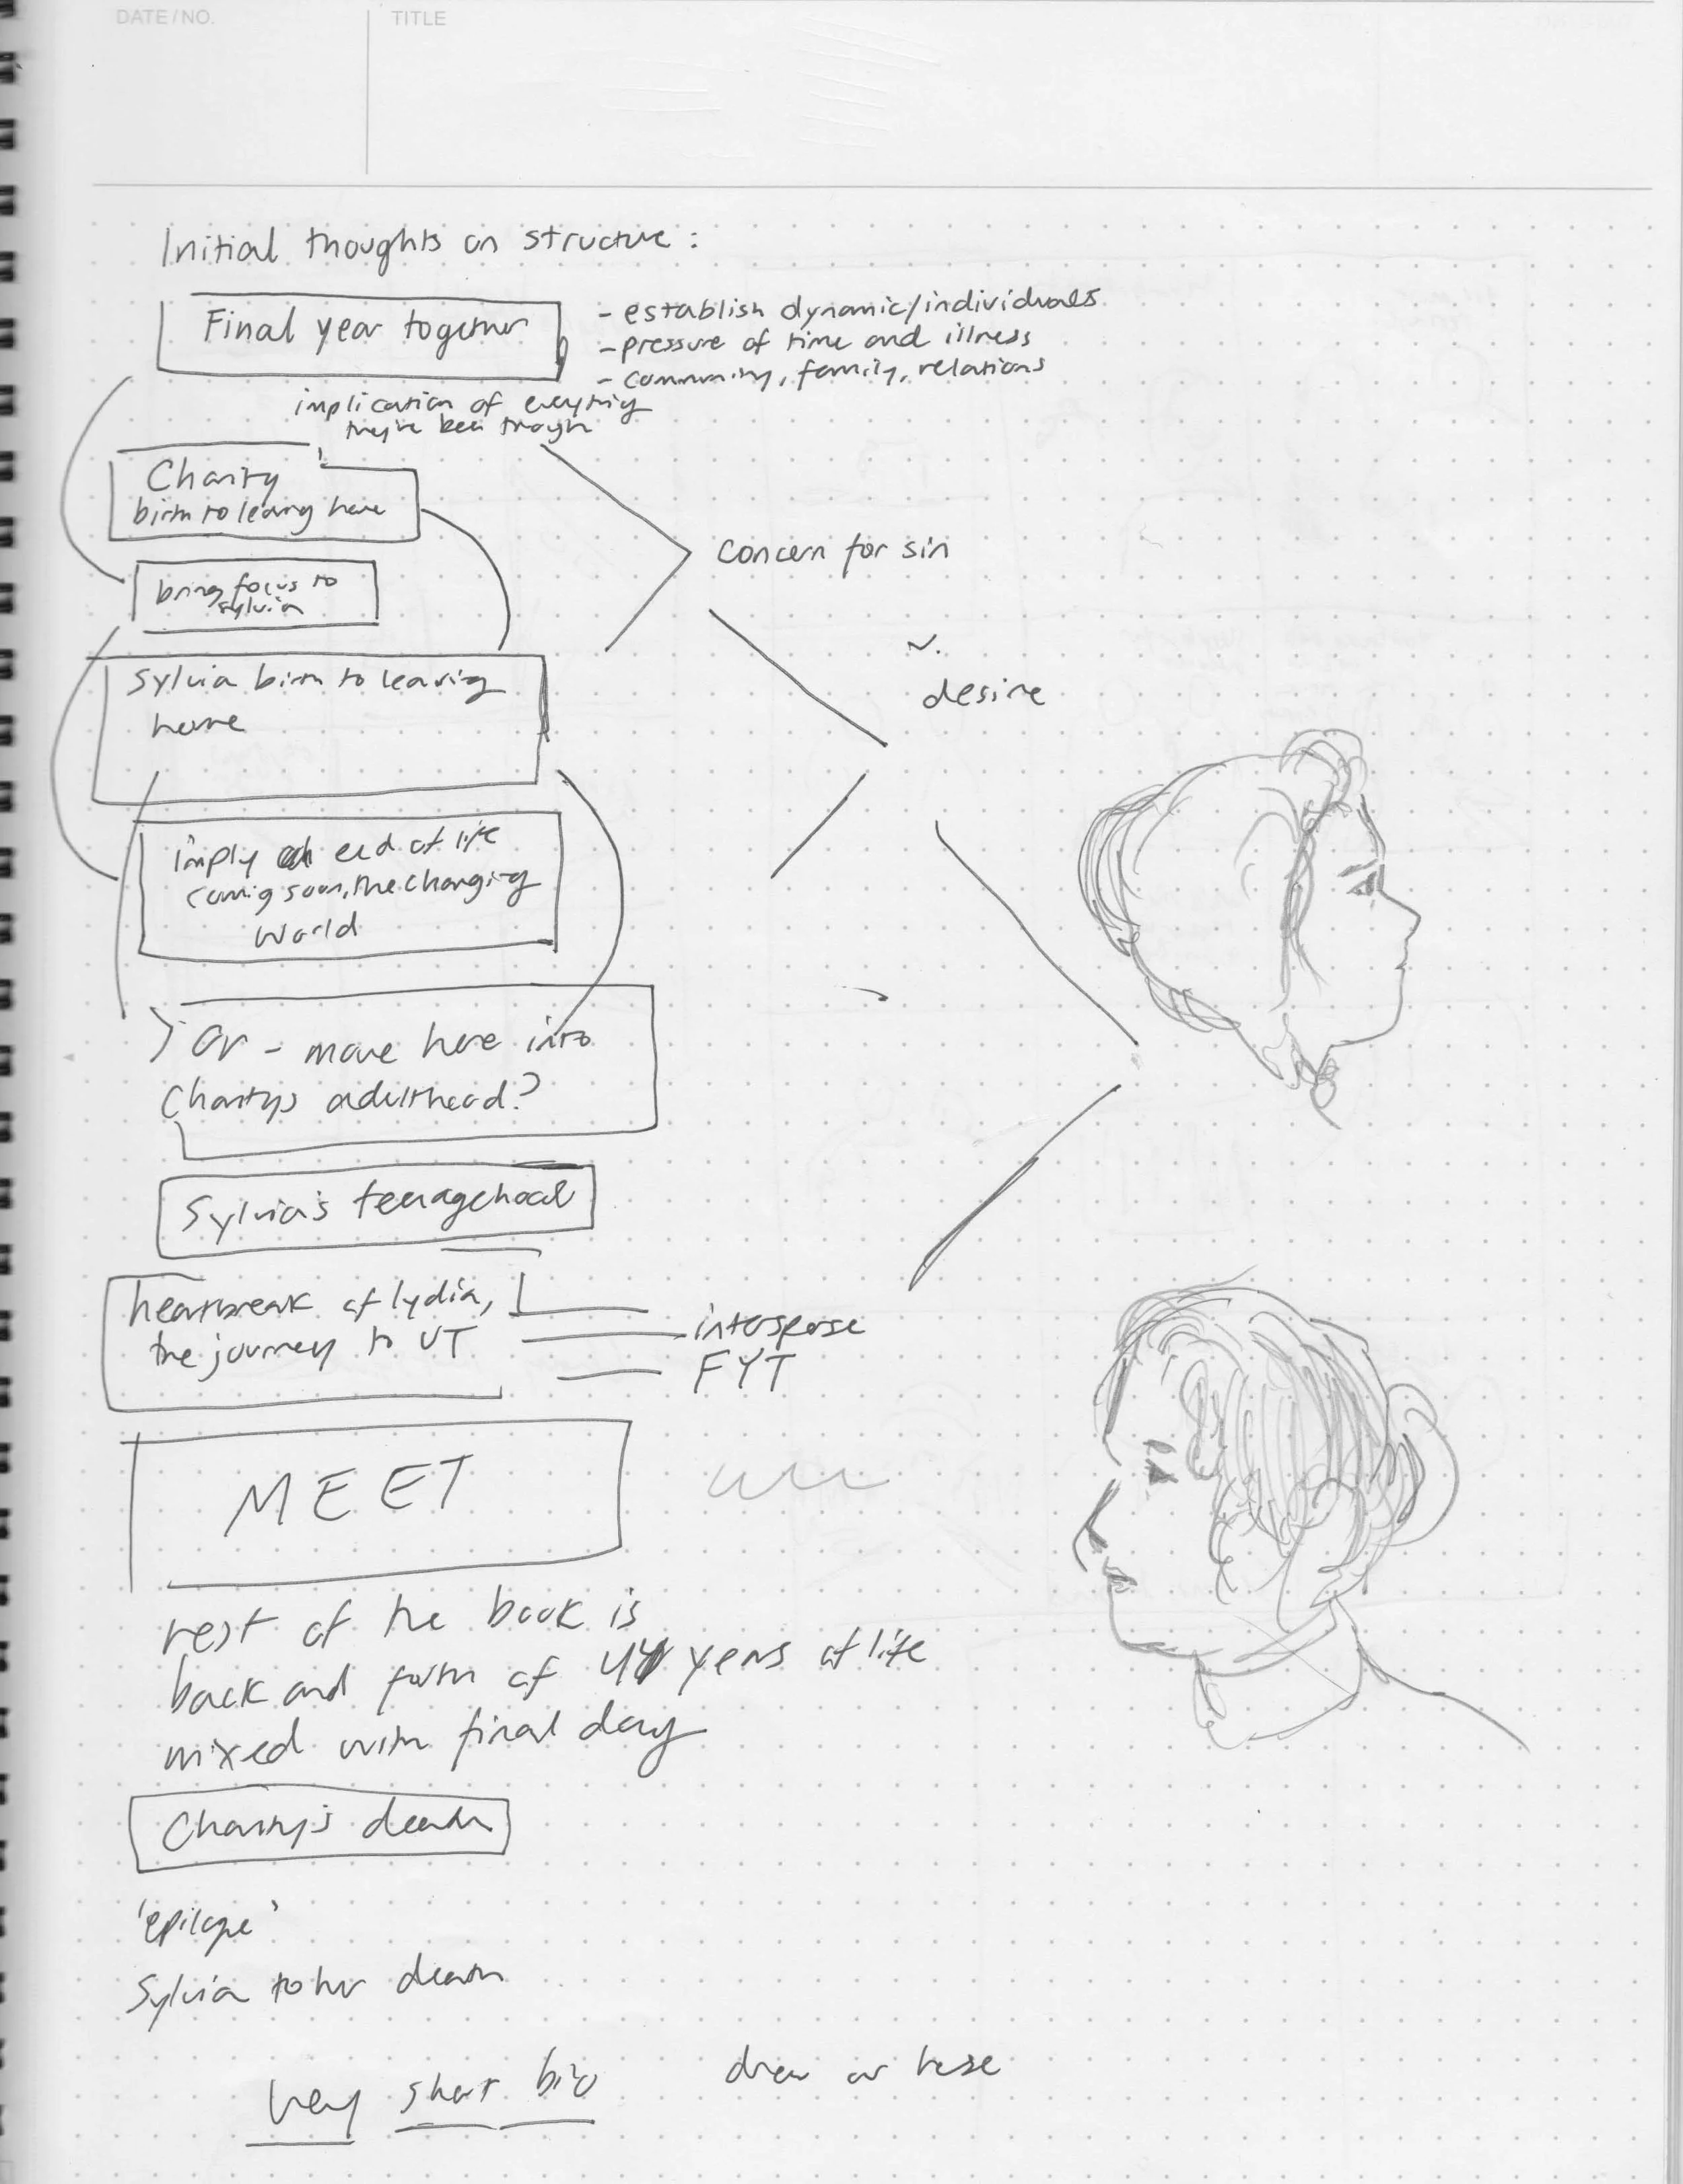 DATE/NO.
TITLE
Initial thoughts on structure:
Final year together
- establish dynamic/individuals
- pressure of time and illness
- community, family, relations
implication of everything
they've been through
Charity
birth to leaving home
concern for sin
bring focus to
sylvia
v.
desire
Sylvia birth to leaving
home
imply end of life
coming soon, the changing
world
or - move here into
Charitys adulthood?
Sylvia's teenagehood
heartbreak of lydia,
the journey to VT
intersperse
FYT
MEET
rest of the book is
back and forth of 44 years of life
mixed with final day
Charity's death
'epilogue'
Sylvia to her death
very short bio
draw or